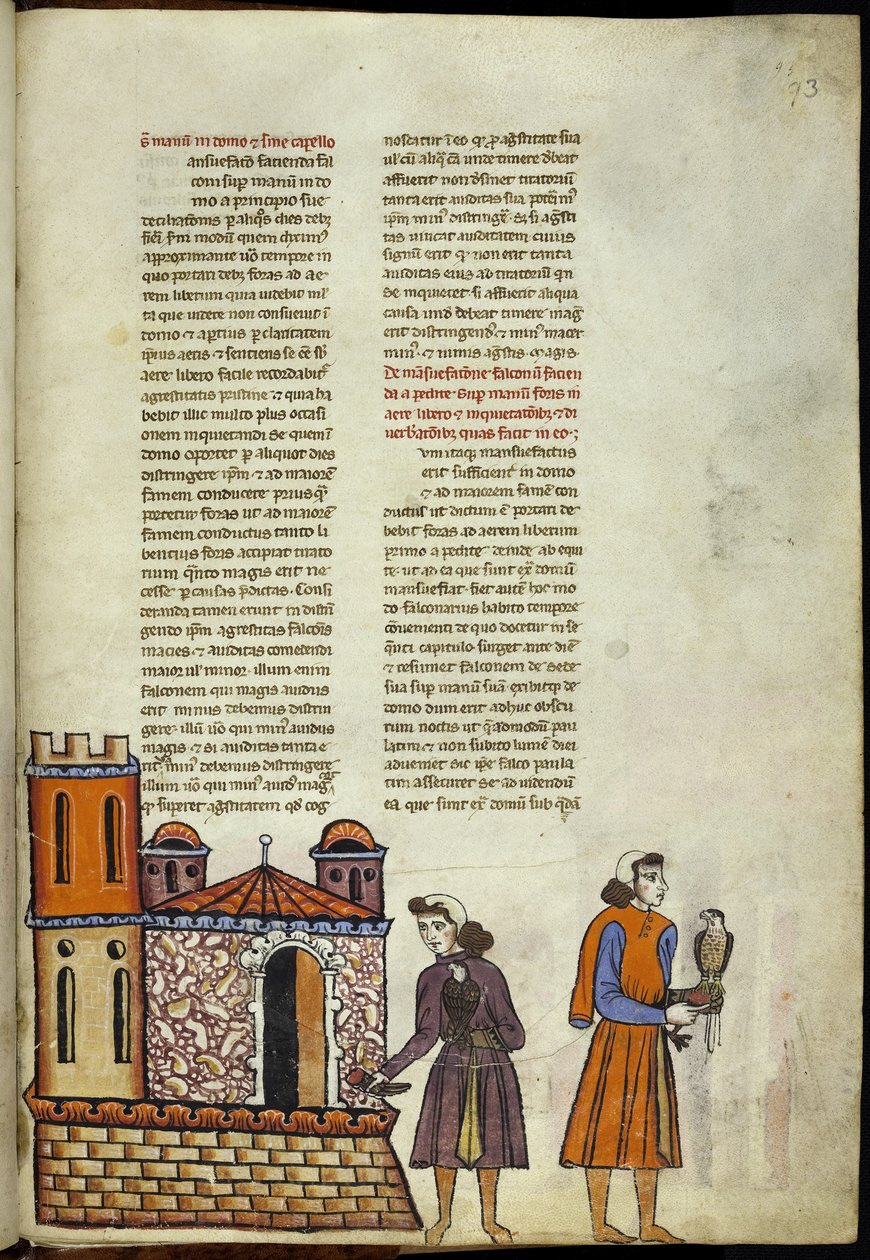 93
93
s̄ manū in domo ⁊ sine capello
ansuefatō facienda fal
coni sup manū in do
mo a principio sue
deciliatōnis p aliq̊s dies debꝫ
fieri sm̄ modū quem diximꝰ
approximante uō tempore in
quo portari debꝫ foras ad ae
rem liberum quia uidebit ml̓
ta que uidere non consueuit ī
domo ⁊ aptius p claritatem
ipsius aeris ⁊ sentiens se ēe sb̓
aere libero facile recordabit̉
agrestitatis pristine ⁊ quia ha
bebit illic multo plus occasi
onem inquietandi se quem ī
domo oportet p aliquot dies
distringere ipm̄ ⁊ ad maiorē
famem conducere prius qͣ
portetur foras ut ad maiorē
famem conductus tanto li
bentius foris accipiat tirato
rium qͣnto magis erit ne
cesse p causas p̄dictas. Consi
deranda tamen erunt in distrī
gendo ipm̄ agrestitas falcōis
macies ⁊ auiditas comedendi
maior ul̓ minor. illum enim
falconem qui magis auidus
erit minus debemus distrin
gere. illū uō qui minꝰ auidus
magis ⁊ si auiditas tanta e
rit minꝰ debemus distringere
illum uō qui minꝰ auidꝰ mag̓
qͥ superet ag̓stitatem qd̓ cog
noscatur ī eo qͥ p agͤstitate sua
ul̓ cū aliq̄ cā unde timere dēbeat
affuerit non dēsinet tiratoriū
tanta erit auiditas sua potēt mꝰ
ipm̄ minꝰ distringē. Et si agͤsti
tas uincat auiditatem cuius
signū erit qͥ non erit tanta
auiditas eius ad tiratoriū qn̄
se inquietet si affuerit aliqua
causa undē debeat timere mag̓
erit distringendꝰ ⁊ minꝰ macer
minꝰ. ⁊ nimis agͤstis. magis.
De māsuefatōne falconū facien
da a pedite sup manū foris in
aere libero ⁊ inquietatōibꝫ ⁊ di
uerb̓atōibꝫ quas facit in eo.;
um itaqꝫ mansuefactus
erit sufficient̉ in domo
⁊ ad maiorem famē con
ductus ut dictum ē portari de
bebit foras ad aerem liberum
primo a pedite deinde ab equi
te. ut ad ea que sunt ex̄ domū
mansuefiat. fiet autē hoc mo
do falconarius habito tempore
cōuenienti de quo docetur in se
q̄nti capitulo surget ante diē
⁊ resumet falconem de sede
sua sup manū suā. exibitqꝫ de
domo dum erit adhuc obscu
rum noctis ut qͣadmodū pau
latim ⁊ non subito lumē diei
adueniet sic ipe falco paula
tim assecuret se ad uidendū
ea que sunt ex̄ domū sub qͣdā